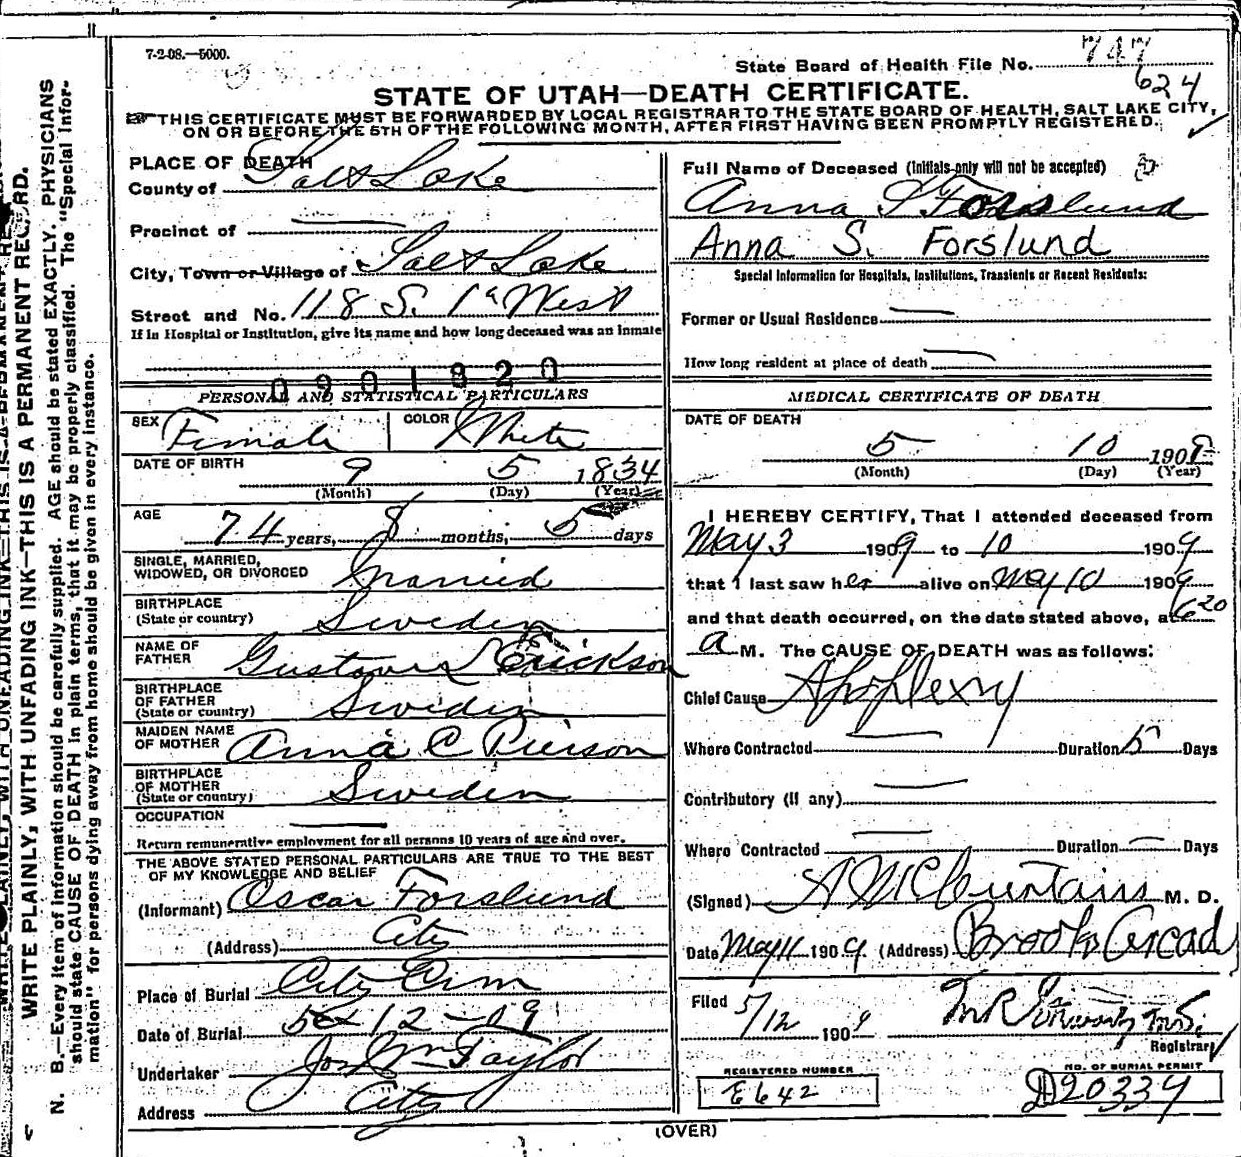 7-2-08.—5000.
State Board of Health File No. 747
624
STATE OF UTAH—DEATH CERTIFICATE.
THIS CERTIFICATE MUST BE FORWARDED BY LOCAL REGISTRAR TO THE STATE BOARD OF HEALTH, SALT LAKE CITY,
ON OR BEFORE THE 5TH OF THE FOLLOWING MONTH, AFTER FIRST HAVING BEEN PROMPTLY REGISTERED.
PLACE OF DEATH
County of Salt Lake
Precinct of —
City, Town or Village of Salt Lake
Street and No. 118 S. 1st West
If in Hospital or Institution, give its name and how long deceased was an inmate
0901820
PERSONAL AND STATISTICAL PARTICULARS
SEX Female COLOR White
DATE OF BIRTH 9 5 1834
(Month) (Day) (Year)
AGE 74 years, 8 months, 5 days
SINGLE, MARRIED,
WIDOWED, OR DIVORCED Married
BIRTHPLACE
(State or country) Sweden
NAME OF
FATHER Gustavus Erickson
BIRTHPLACE
OF FATHER
(State or country) Sweden
MAIDEN NAME
OF MOTHER Anna C Pierson
BIRTHPLACE
OF MOTHER
(State or country) Sweden
OCCUPATION —
Return remunerative employment for all persons 10 years of age and over.
THE ABOVE STATED PERSONAL PARTICULARS ARE TRUE TO THE BEST
OF MY KNOWLEDGE AND BELIEF
(Informant) Oscar Forslund
(Address) City
Place of Burial City Cem
Date of Burial 5-12-09
Undertaker Jos Wm Taylor
Address City
Full Name of Deceased (Initials only will not be accepted)
Anna S Forslund
Anna S. Forslund
Special Information for Hospitals, Institutions, Transients or Recent Residents:
Former or Usual Residence —
How long resident at place of death —
MEDICAL CERTIFICATE OF DEATH
DATE OF DEATH
5 10 1909
(Month) (Day) (Year)
I HEREBY CERTIFY, That I attended deceased from
May 3 1909 to 10 1909
that I last saw her alive on May 10 1909
and that death occurred, on the date stated above, at 6 20
a M. The CAUSE OF DEATH was as follows:
Chief Cause Apoplexy
Where Contracted — Duration 5 Days
Contributory (if any) —
Where Contracted — Duration — Days
(Signed) M. D.
Date May 11 1909 (Address) Brooks Arcade
Filed 5/12 1909
Registrar
REGISTERED NUMBER
E642
NO. OF BURIAL PERMIT
D20339
(OVER)
WRITE PLAINLY, WITH UNFADING INK—THIS IS A PERMANENT RECORD.
N. B.—Every item of information should be carefully supplied. AGE should be stated EXACTLY. PHYSICIANS
should state CAUSE OF DEATH in plain terms, that it may be properly classified. The "Special Infor-
mation" for persons dying away from home should be given in every instance.